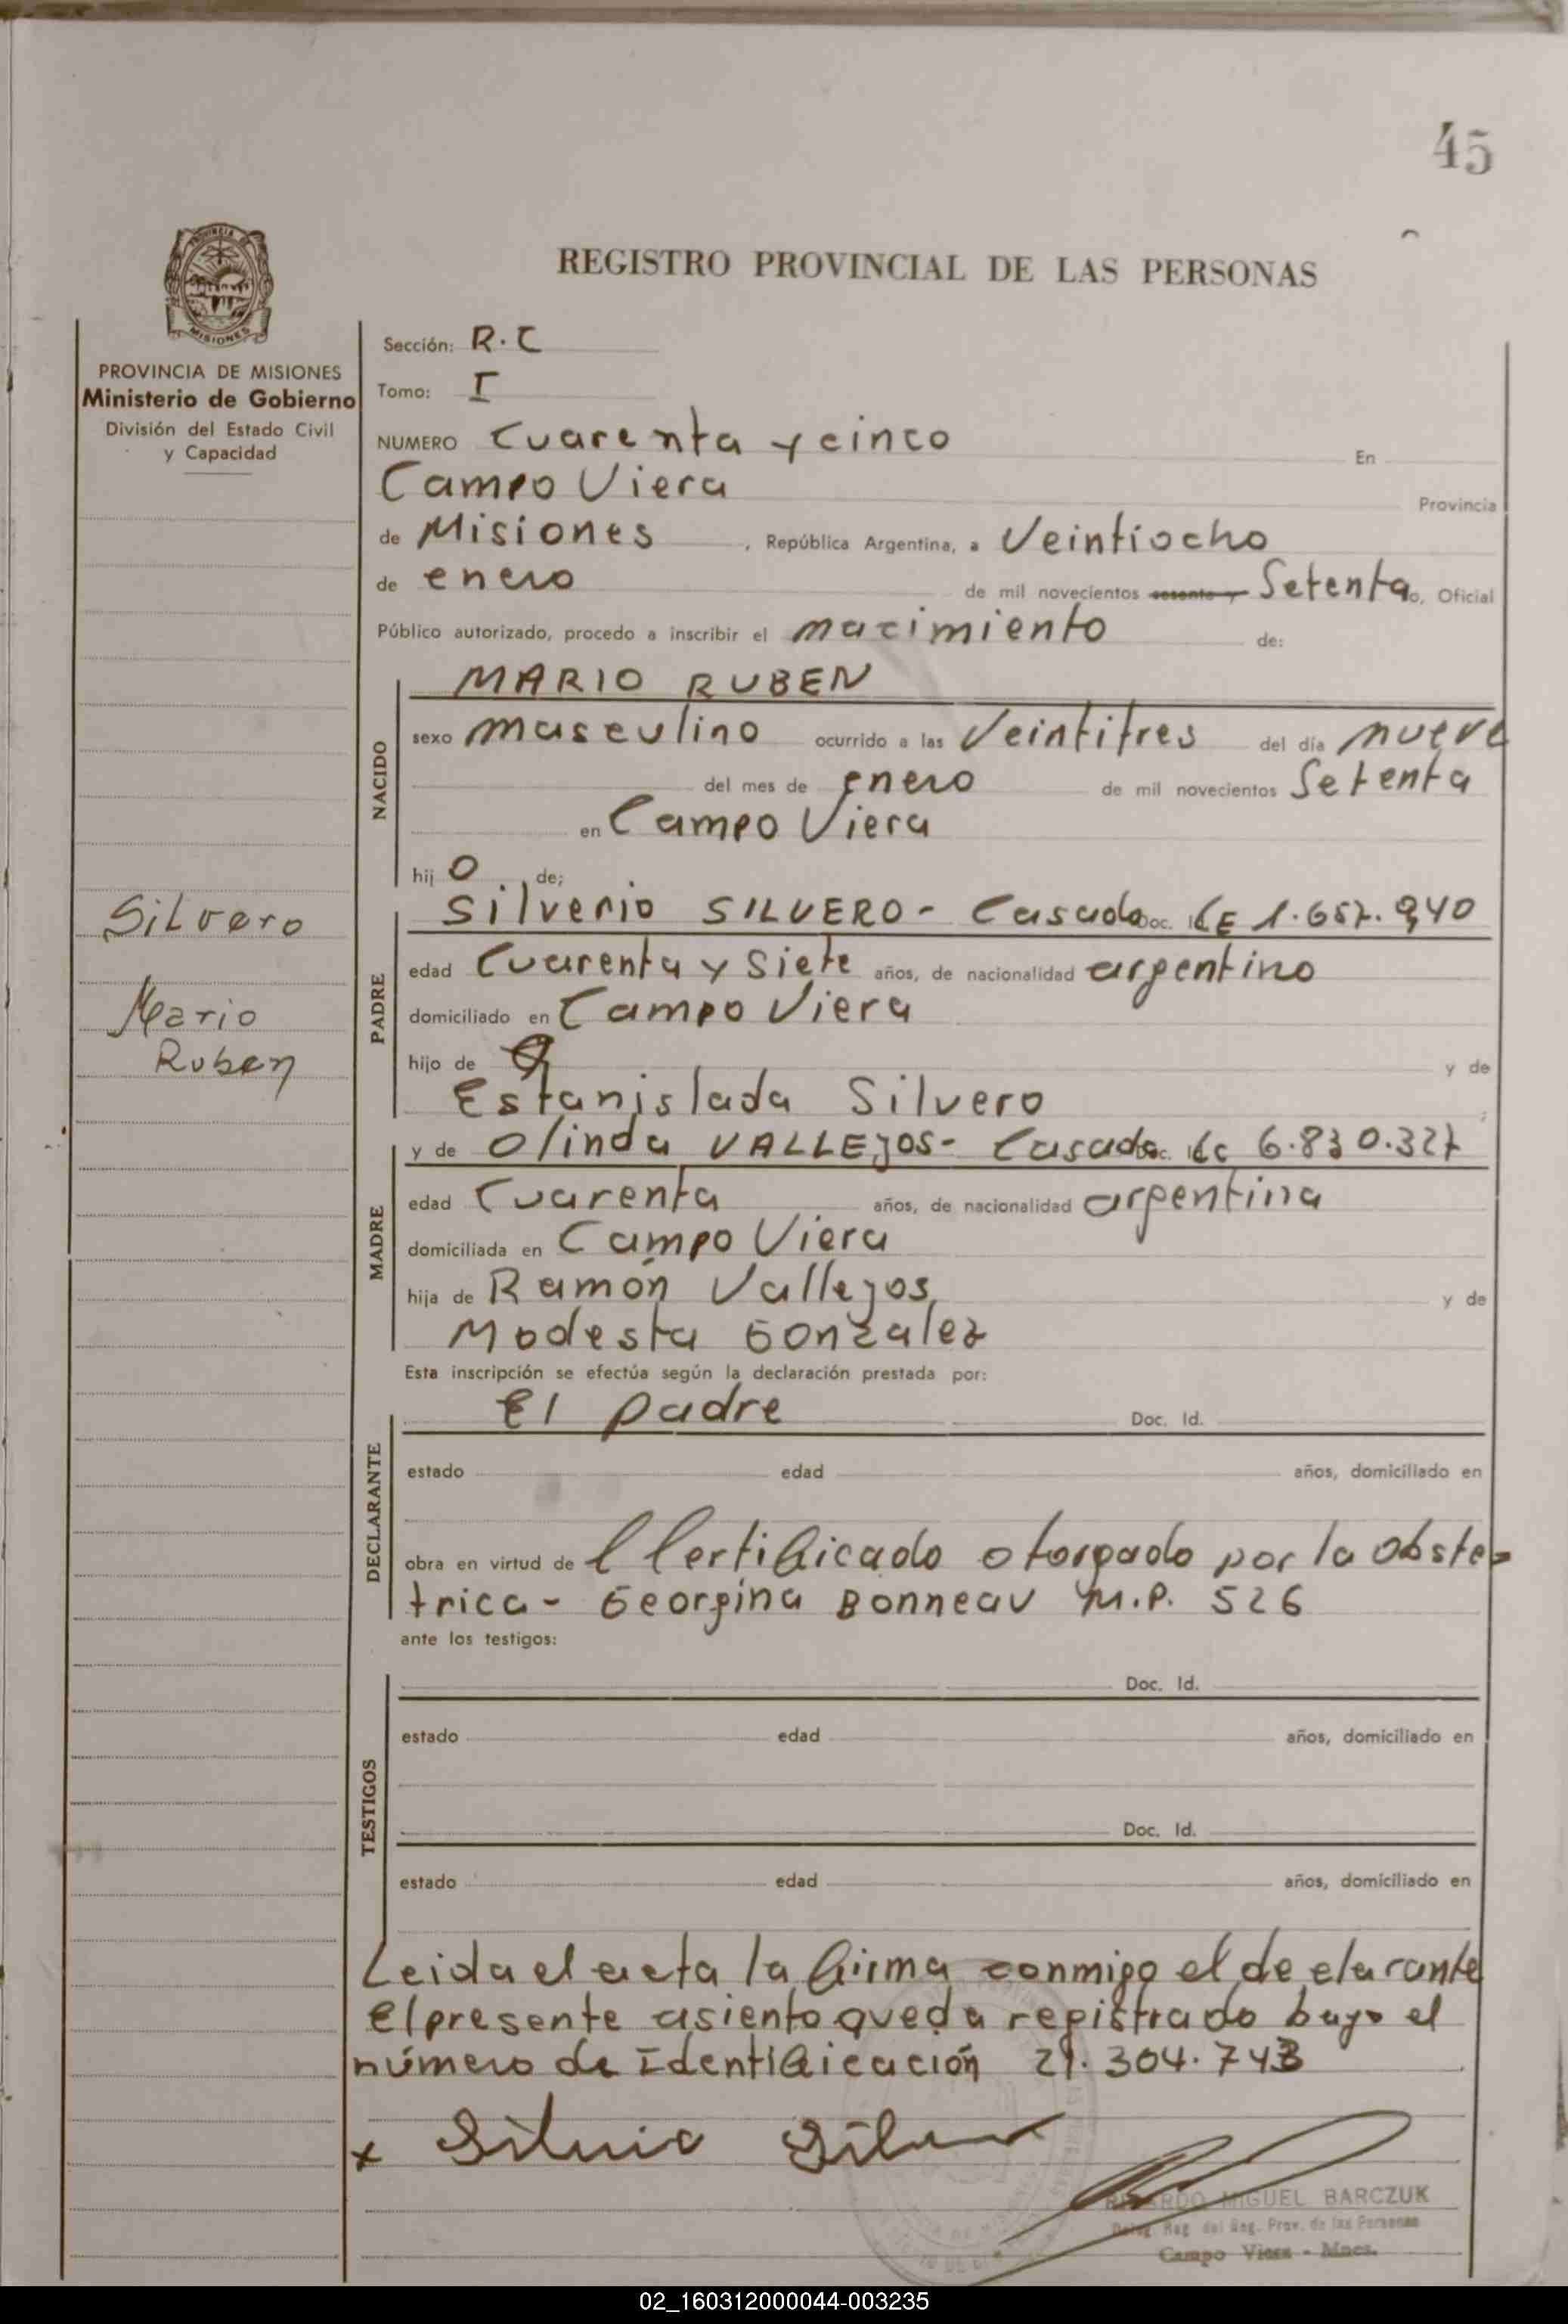 45
PROVINCIA DE
MISIONES
REGISTRO PROVINCIAL DE LAS PERSONAS
PROVINCIA DE MISIONES
Ministerio de Gobierno
División del Estado Civil
y Capacidad
Silvero
Mario
Ruben
Sección: R.C
Tomo: I
NUMERO Cuarenta y cinco En
Campo Viera Provincia
de Misiones, República Argentina, a Veintiocho
de enero de mil novecientos sesenta y Setenta o, Oficial
Público autorizado, procedo a inscribir el nacimiento de:
NACIDO
MARIO RUBEN
sexo masculino ocurrido a las Veintitres del día nueve
del mes de enero de mil novecientos Setenta
en Campo Viera
hijo de;
PADRE
Silverio SILVERO- Casado Doc. 1.657.940
edad Cuarenta y Siete años, de nacionalidad argentino
domiciliado en Campo Viera
hijo de y de
Estanislada Silvero
MADRE
y de Olinda VALLEJOS- Casada Doc. 6.830.327
edad Cuarenta años, de nacionalidad argentina
domiciliada en Campo Viera
hija de Ramón Vallejos, y de
Modesta Gonzalez
Esta inscripción se efectúa según la declaración prestada por:
DECLARANTE
El padre Doc. Id.
estado edad años, domiciliado en
obra en virtud de l Certificado otorgado por la obste-
trica- Georgina Bonneau M.P. 526
ante los testigos:
TESTIGOS
Doc. Id.
estado edad años, domiciliado en
Doc. Id.
estado edad años, domiciliado en
Leida el acta la firma conmigo el declarante
El presente asiento queda registrado bajo el
número de Identificación 21.304.743
x Silverio Silvero
RICARDO MIGUEL BARCZUK
Deleg. Reg. del Reg. Prov. de las Personas
Campo Viera - Mnes.
02_160312000044-003235